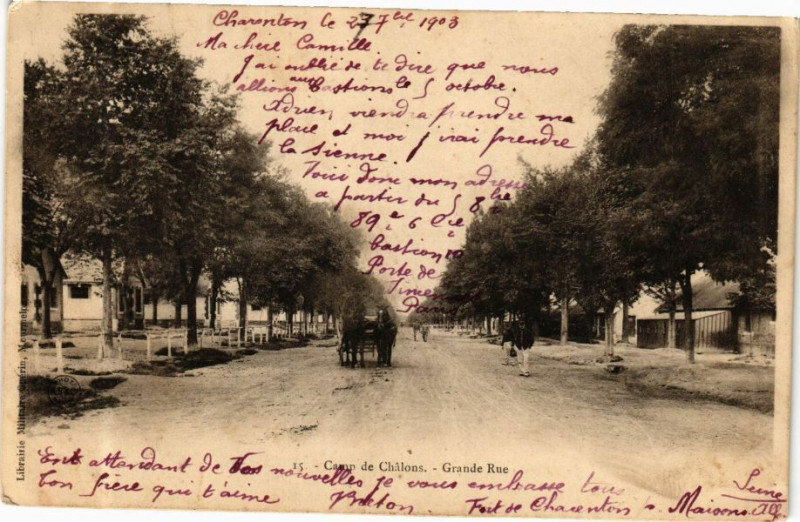 Charenton le 27 7bre 1903
Ma chère Camille
J'ai oublié de te dire que nous
allions aux bastions le 5 octobre.
Adrien viendra prendre ma
place et moi j'irai prendre
la sienne.
Voici donc mon adresse
a partir du 5 8bre
89e 6 Cie
bastion 10
Porte de
Paris
15 - Camp de Châlons. - Grande Rue
En attendant de tes nouvelles je vous embrasse tous
ton frère qui t'aime
Fort de Charenton p. Maisons Alf.
Seine
Librairie Militaire Guérin, Mourmelon